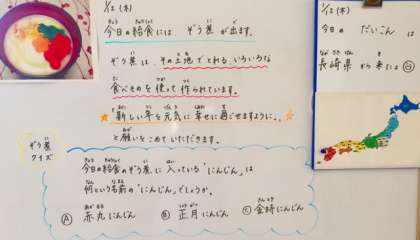 1/12 (木)
今日の給食には ぞう煮 が出ます。
ぞう煮 は、その土地でとれる いろいろな
食べものを 使って 作られています。
☆「新しい年を元気に 幸せに 過ごせますように。」☆
と願いをこめて いただきます。
ぞう煮
クイズ
今日の給食のぞう煮 に 入っている "にんじん" は
何という名前の "にんじん" でしょうか。
Ⓐ 赤丸にんじん Ⓑ 正月にんじん Ⓒ 金時にんじん
1/12 (木)
今日の だいこん は
長崎県から来たよ